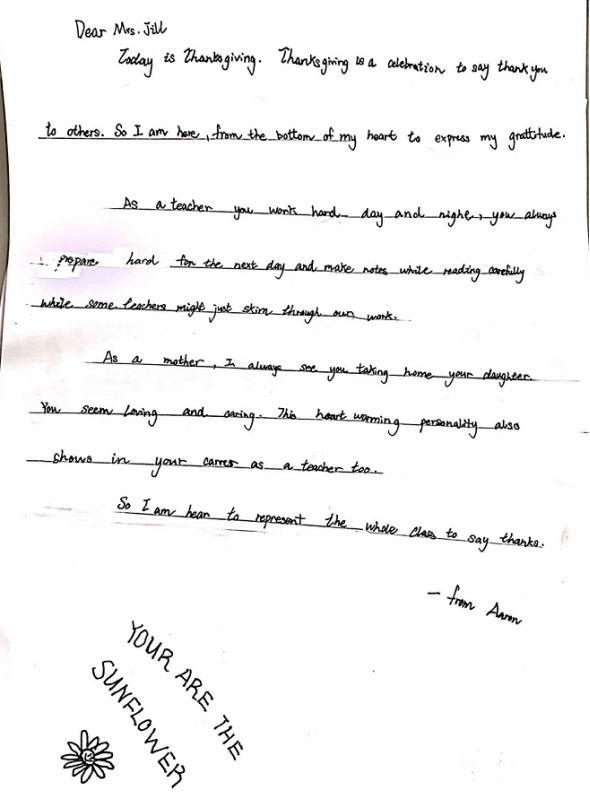 Dear Mrs. Jill
Today is Thanksgiving. Thanksgiving is a celebration to say thank you
to others. So I am here, from the bottom of my heart to express my grattitude.
As a teacher you work hard day and nighe, you always
prepare hard for the next day and make notes while reading carefully
while some teachers might just skim through our work.
As a mother, I always see you taking home your daughter.
You seem loving and caring. This heart warming personality also
shows in your carrer as a teacher too.
So I am hear to represent the whole class to say thanks.
- from Aaron
YOUR ARE THE
SUNFLOWER